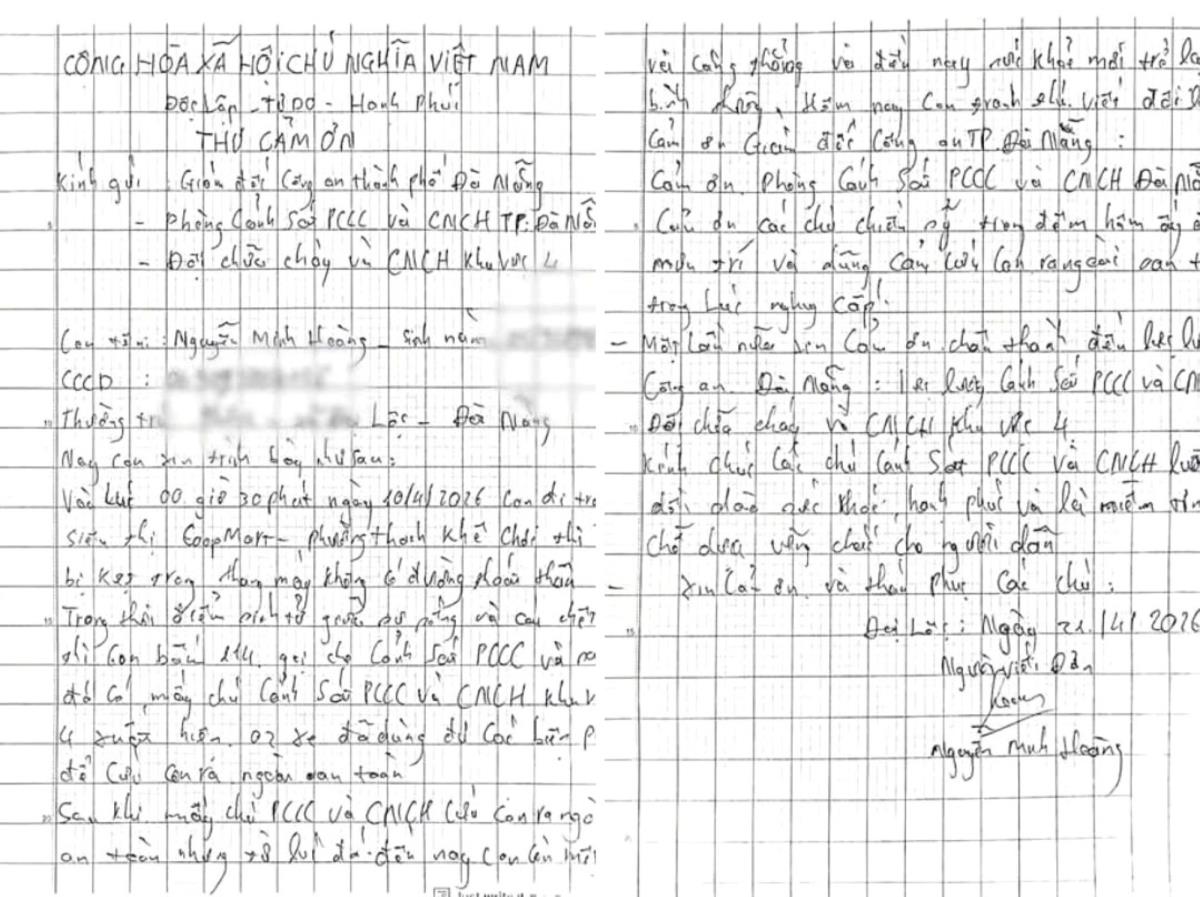 CÔNG HÒA XÃ HỘI CHỦ NGHĨA VIỆT NAM
Độc Lập - Tự Do - Hạnh Phúc
THƯ CẢM ƠN
Kính gửi : Giám đốc Công an thành phố Đà Nẵng
- Phòng Cảnh Sát PCCC và CNCH TP. Đà Nẵ
- Đội chữa cháy và CNCH Khu vực 4
Con tên : Nguyễn Minh Hoàng - sinh năm
CCCD :
Thường tr Lộc - Đà Nẵng
Nay con xin trình bày như sau:
Vào lúc 00 giờ 30 phút ngày 10/4/2026 Con đi tr
siêu thị CoopMart - phường thanh khê Chơi thì
bị kẹt trong thang máy không có đường thoát thân
Trong thời điểm sinh tử giữa sự sống và cái chết
thì Con bấm 114 gọi cho Cảnh Sát PCCC và
đó có mấy chú Cảnh Sát PCCC và CNCH khu v
4 xuất hiện. 02 xe đã dùng đủ Các biện p
để Cứu Con ra ngoài an toàn
Sau khi mấy chú PCCC và CNCH Cứu Con ra ngo
an toàn nhưng từ lúc đó đến nay Con còn
với căng thẳng và đến nay sức khỏe mới trở lạ
bình thường. Hôm nay Con tranh thủ viết đôi
Cảm ơn Giám đốc Công an TP. Đà Nẵng :
Cảm ơn. Phòng Cảnh Sát PCCC và CNCH Đà Nẵ
Cảm ơn các chú chiến sỹ trong đêm hôm ấy
mưu trí và dũng cảm cứu Con ra ngoài an t
trong lúc nguy cấp!
- Một lần nữa xin Cảm ơn chân thành đến lực lư
Công an Đà Nẵng : lực lượng Cảnh Sát PCCC và CN
Đội chữa cháy và CNCH Khu vực 4
Kính chúc Các chú Cảnh Sát PCCC và CNCH luô
dồi dào sức khỏe, hạnh phúc và là niềm tin
chỗ dựa vững chắc cho người dân
- xin Cảm ơn và thán phục Các chú :
Đại Lộc : Ngày 21/4/2026
Người viết Đơn
Hoàng
Nguyễn Minh Hoàng